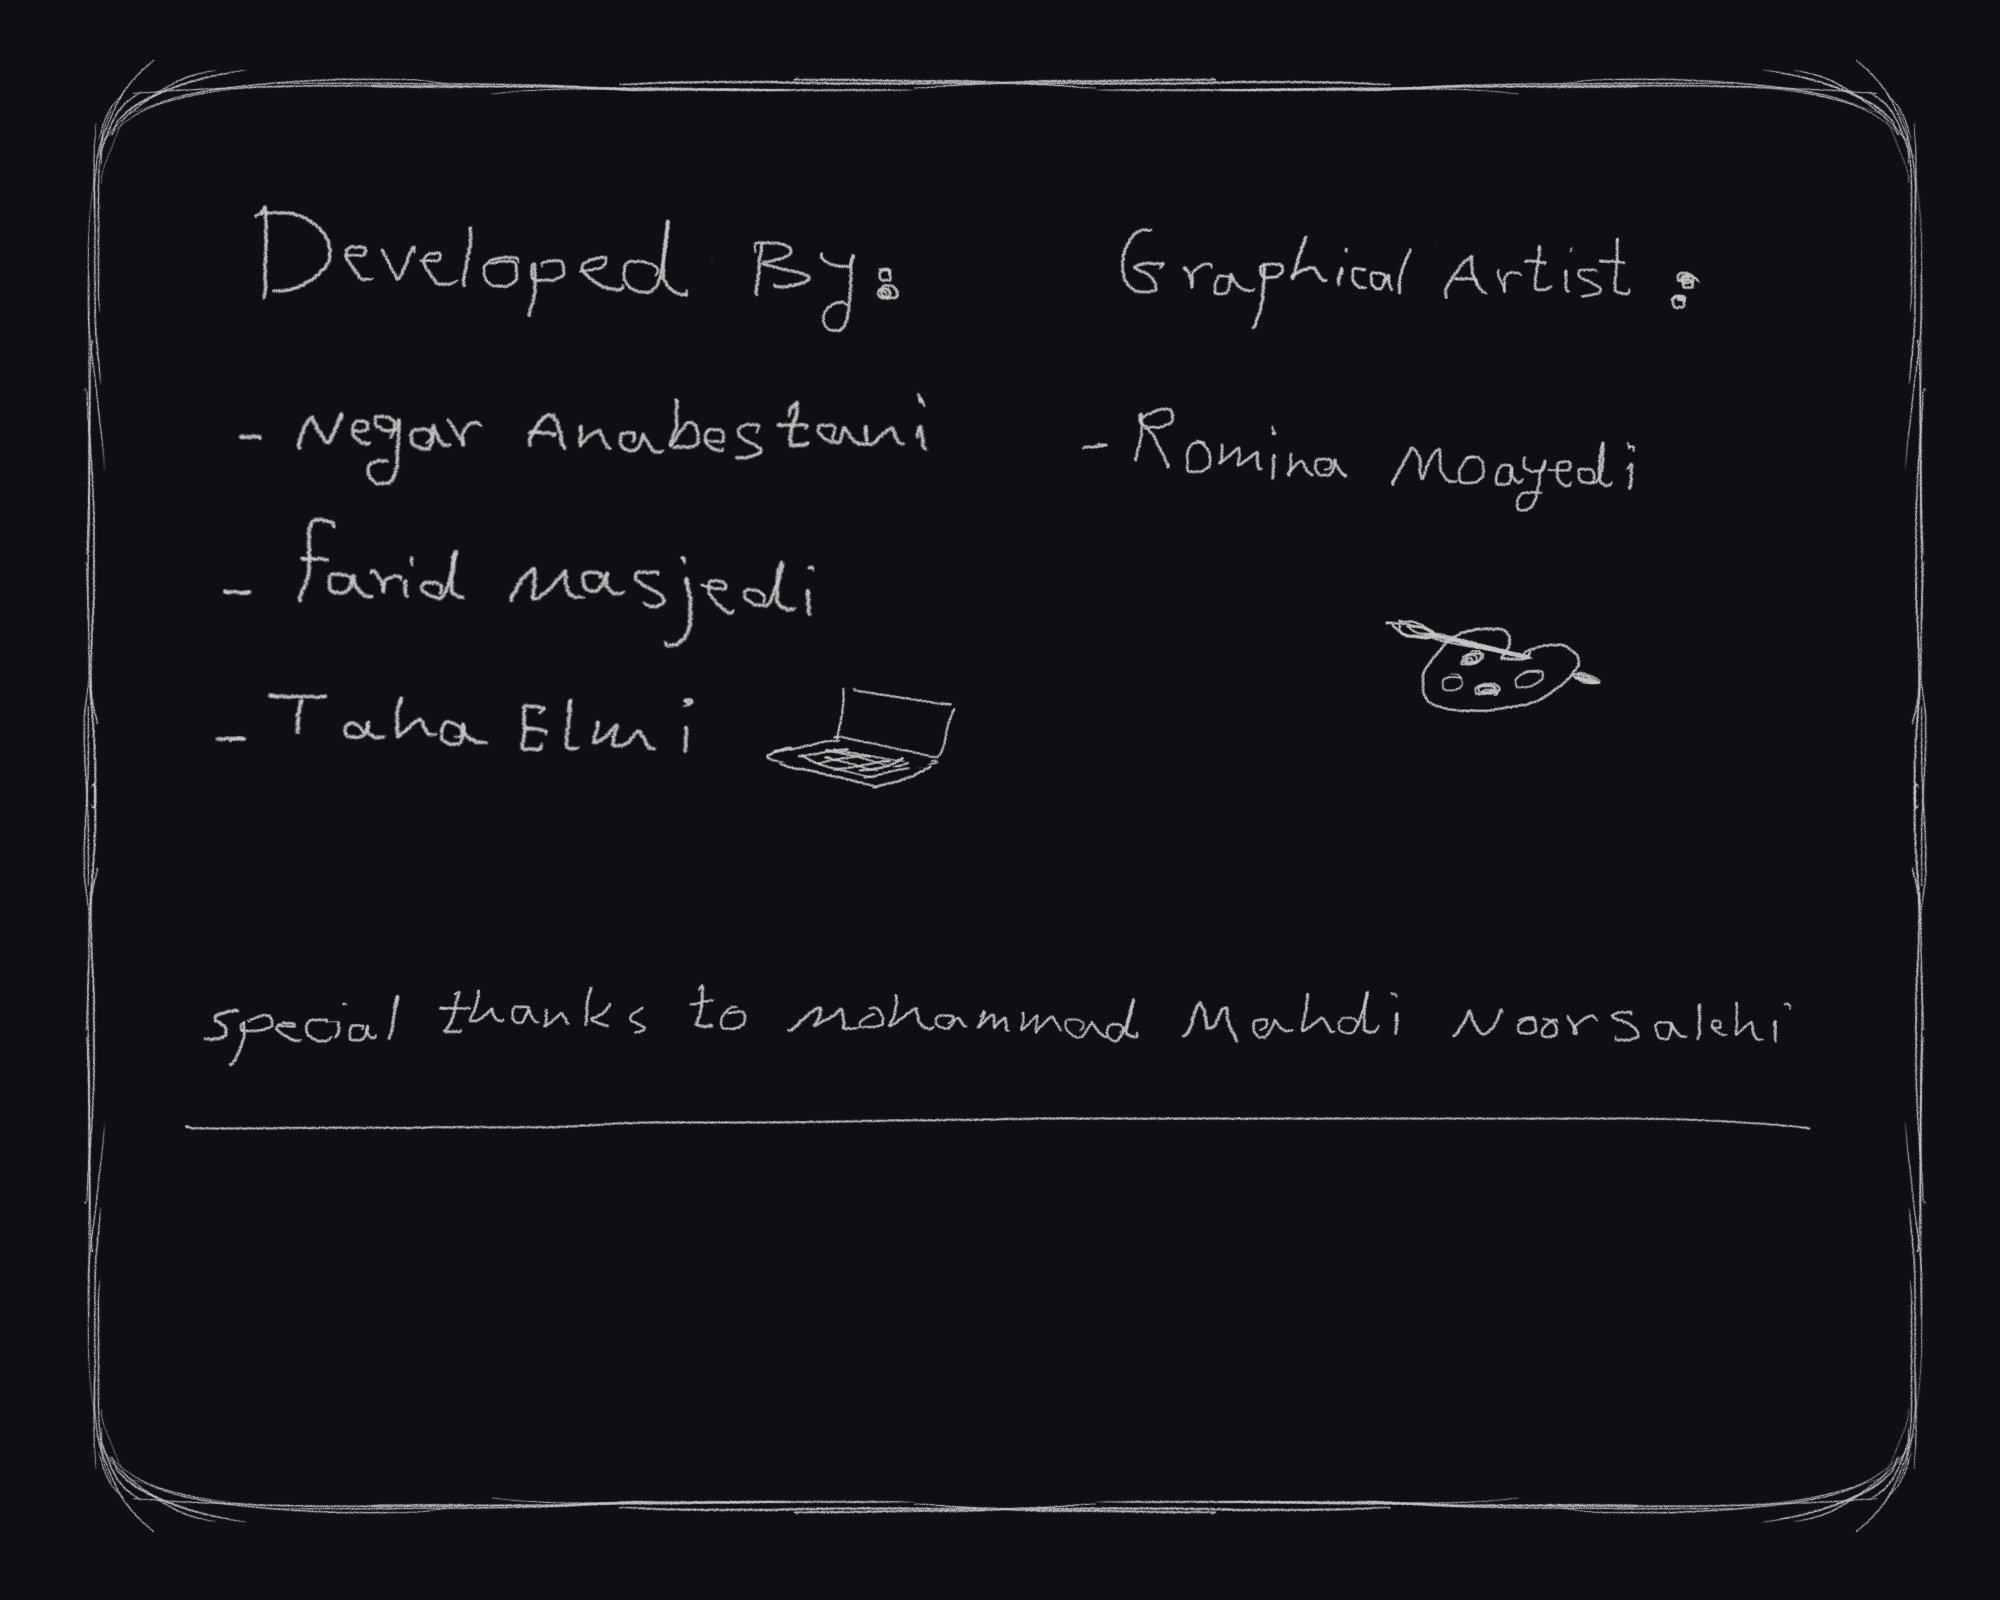 Developed By:
- Negar Anabestani
- Farid Masjedi
- Taha Elmi
Graphical Artist :
- Romina Moayedi
special thanks to Mohammad Mahdi Noorsalehi